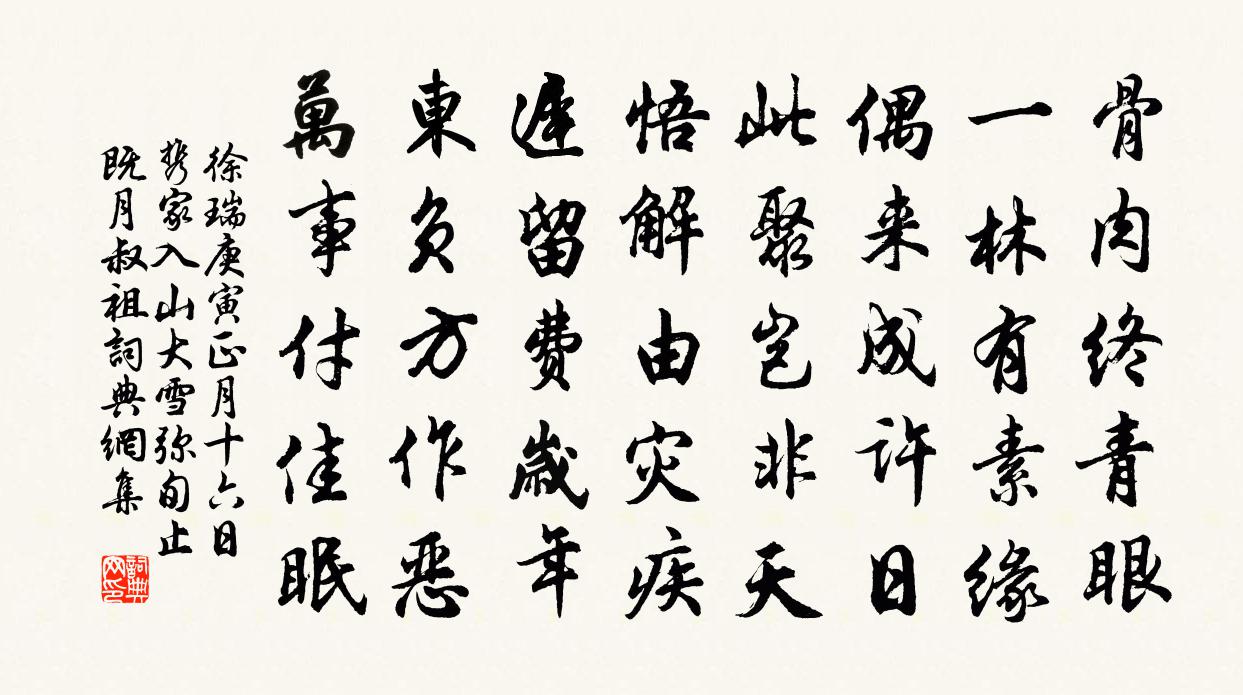 骨肉终青眼
一林有素緣
偶来成许日
此聚岂非天
悟解由灾疾
遲留費歲年
東负方作恶
萬事付佳眠
徐瑞庚寅正月十六日
携家入山大雪弥旬止
既月叔祖詞典網集
詞典網印